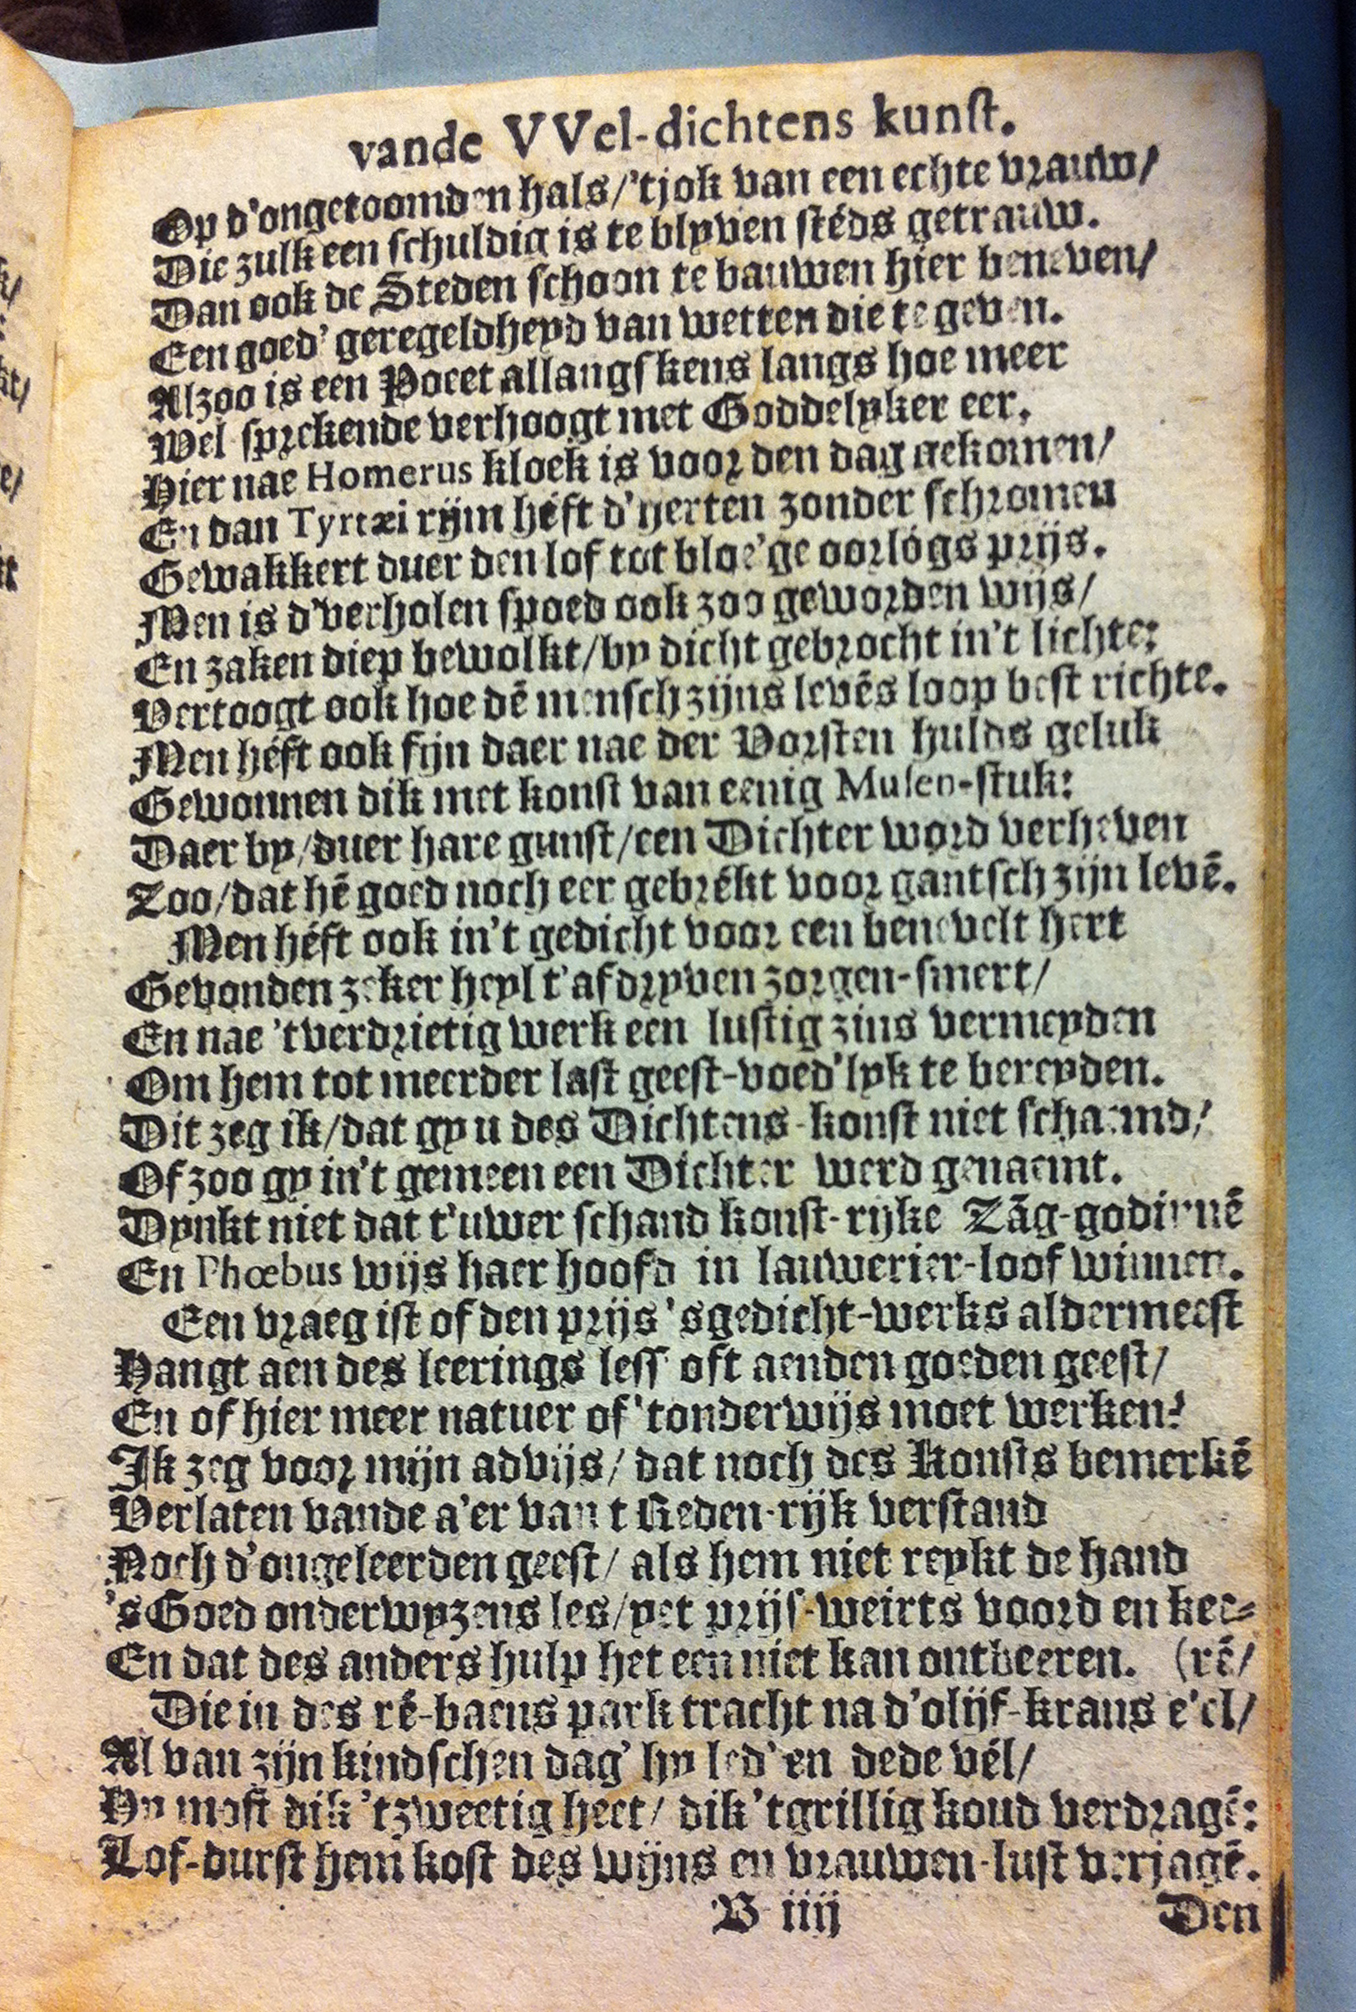 vande VVel-dichtens kunst.
Op d'ongetoomden hals/'tjok van een echte vrauw/
Die zulk een schuldig is te blyven stéds getrauw.
Dan ook de Steden schoon te bauwen hier beneven/
Een goed' geregeldheyd van wetten die te geven.
Alzoo is een Poeet allangskens langs hoe meer
Wel sprekende verhoogt met Goddelyker eer,
Hier nae Homerus kloek is voor den dag gekomen/
En dan Tyrtæi rijm héft d'herten zonder schromen
Gewakkert duer den lof tot bloe'ge oorlógs prijs.
Men is d'verholen spoed ook zoo geworden wijs/
En zaken diep bewolkt/by dicht gebrocht in't lichte:
Vertoogt ook hoe dē mensch zijns levēs loop best richte.
Men héft ook fijn daer nae der Vorsten hulds geluk
Gewonnen dik met konst van eenig Musen-stuk:
Daer by/duer hare gunst/een Dichter word verheven
Zoo/dat hē goed noch eer gebrékt voor gantsch zijn levē.
Men héft ook in't gedicht voor een benevelt hert
Gevonden zeker heyl t'afdryven zorgen-smert/
En nae 'tverdrietig werk een lustig zins vermeyden
Om hem tot meerder last geest-voed'lyk te bereyden.
Dit zeg ik/dat gy u des Dichtens-konst niet schaemd/
Of zoo gy in't gemeen een Dichter werd genaemt.
Dynkt niet dat t'uwer schand konst-ryke Zāg-godinnē
En Phœbus wijs haer hoofd in lauwerier-loof winnen.
Een vraeg ist of den prijs 'sgedicht-werks aldermeest
Hangt aen des leerings less oft aenden goeden geest/
En of hier meer natuer of 'tonderwijs moet werken?
Ik zeg voor mijn advijs/ dat noch des Konsts bemerkē
Verlaten vande a'er van t Reden-rijk verstand
Noch d'ongeleerden geest/ als hem niet reykt de hand
's Goed onderwyzens les/yet prijs-weirts voord en kee-
En dat des anders hulp het een niet kan ontbeeren. (rē/
Die in des ré-baens park tracht na d'olijf-krans e'el/
Al van zijn kindschen dag' hy led' en dede vél/
Hy most dik 'tzweetig heet/ dik 'tgrillig koud verdragē:
Lof-durst hem kost des wijns en vrauwen-lust verjagē.
B iiij Den